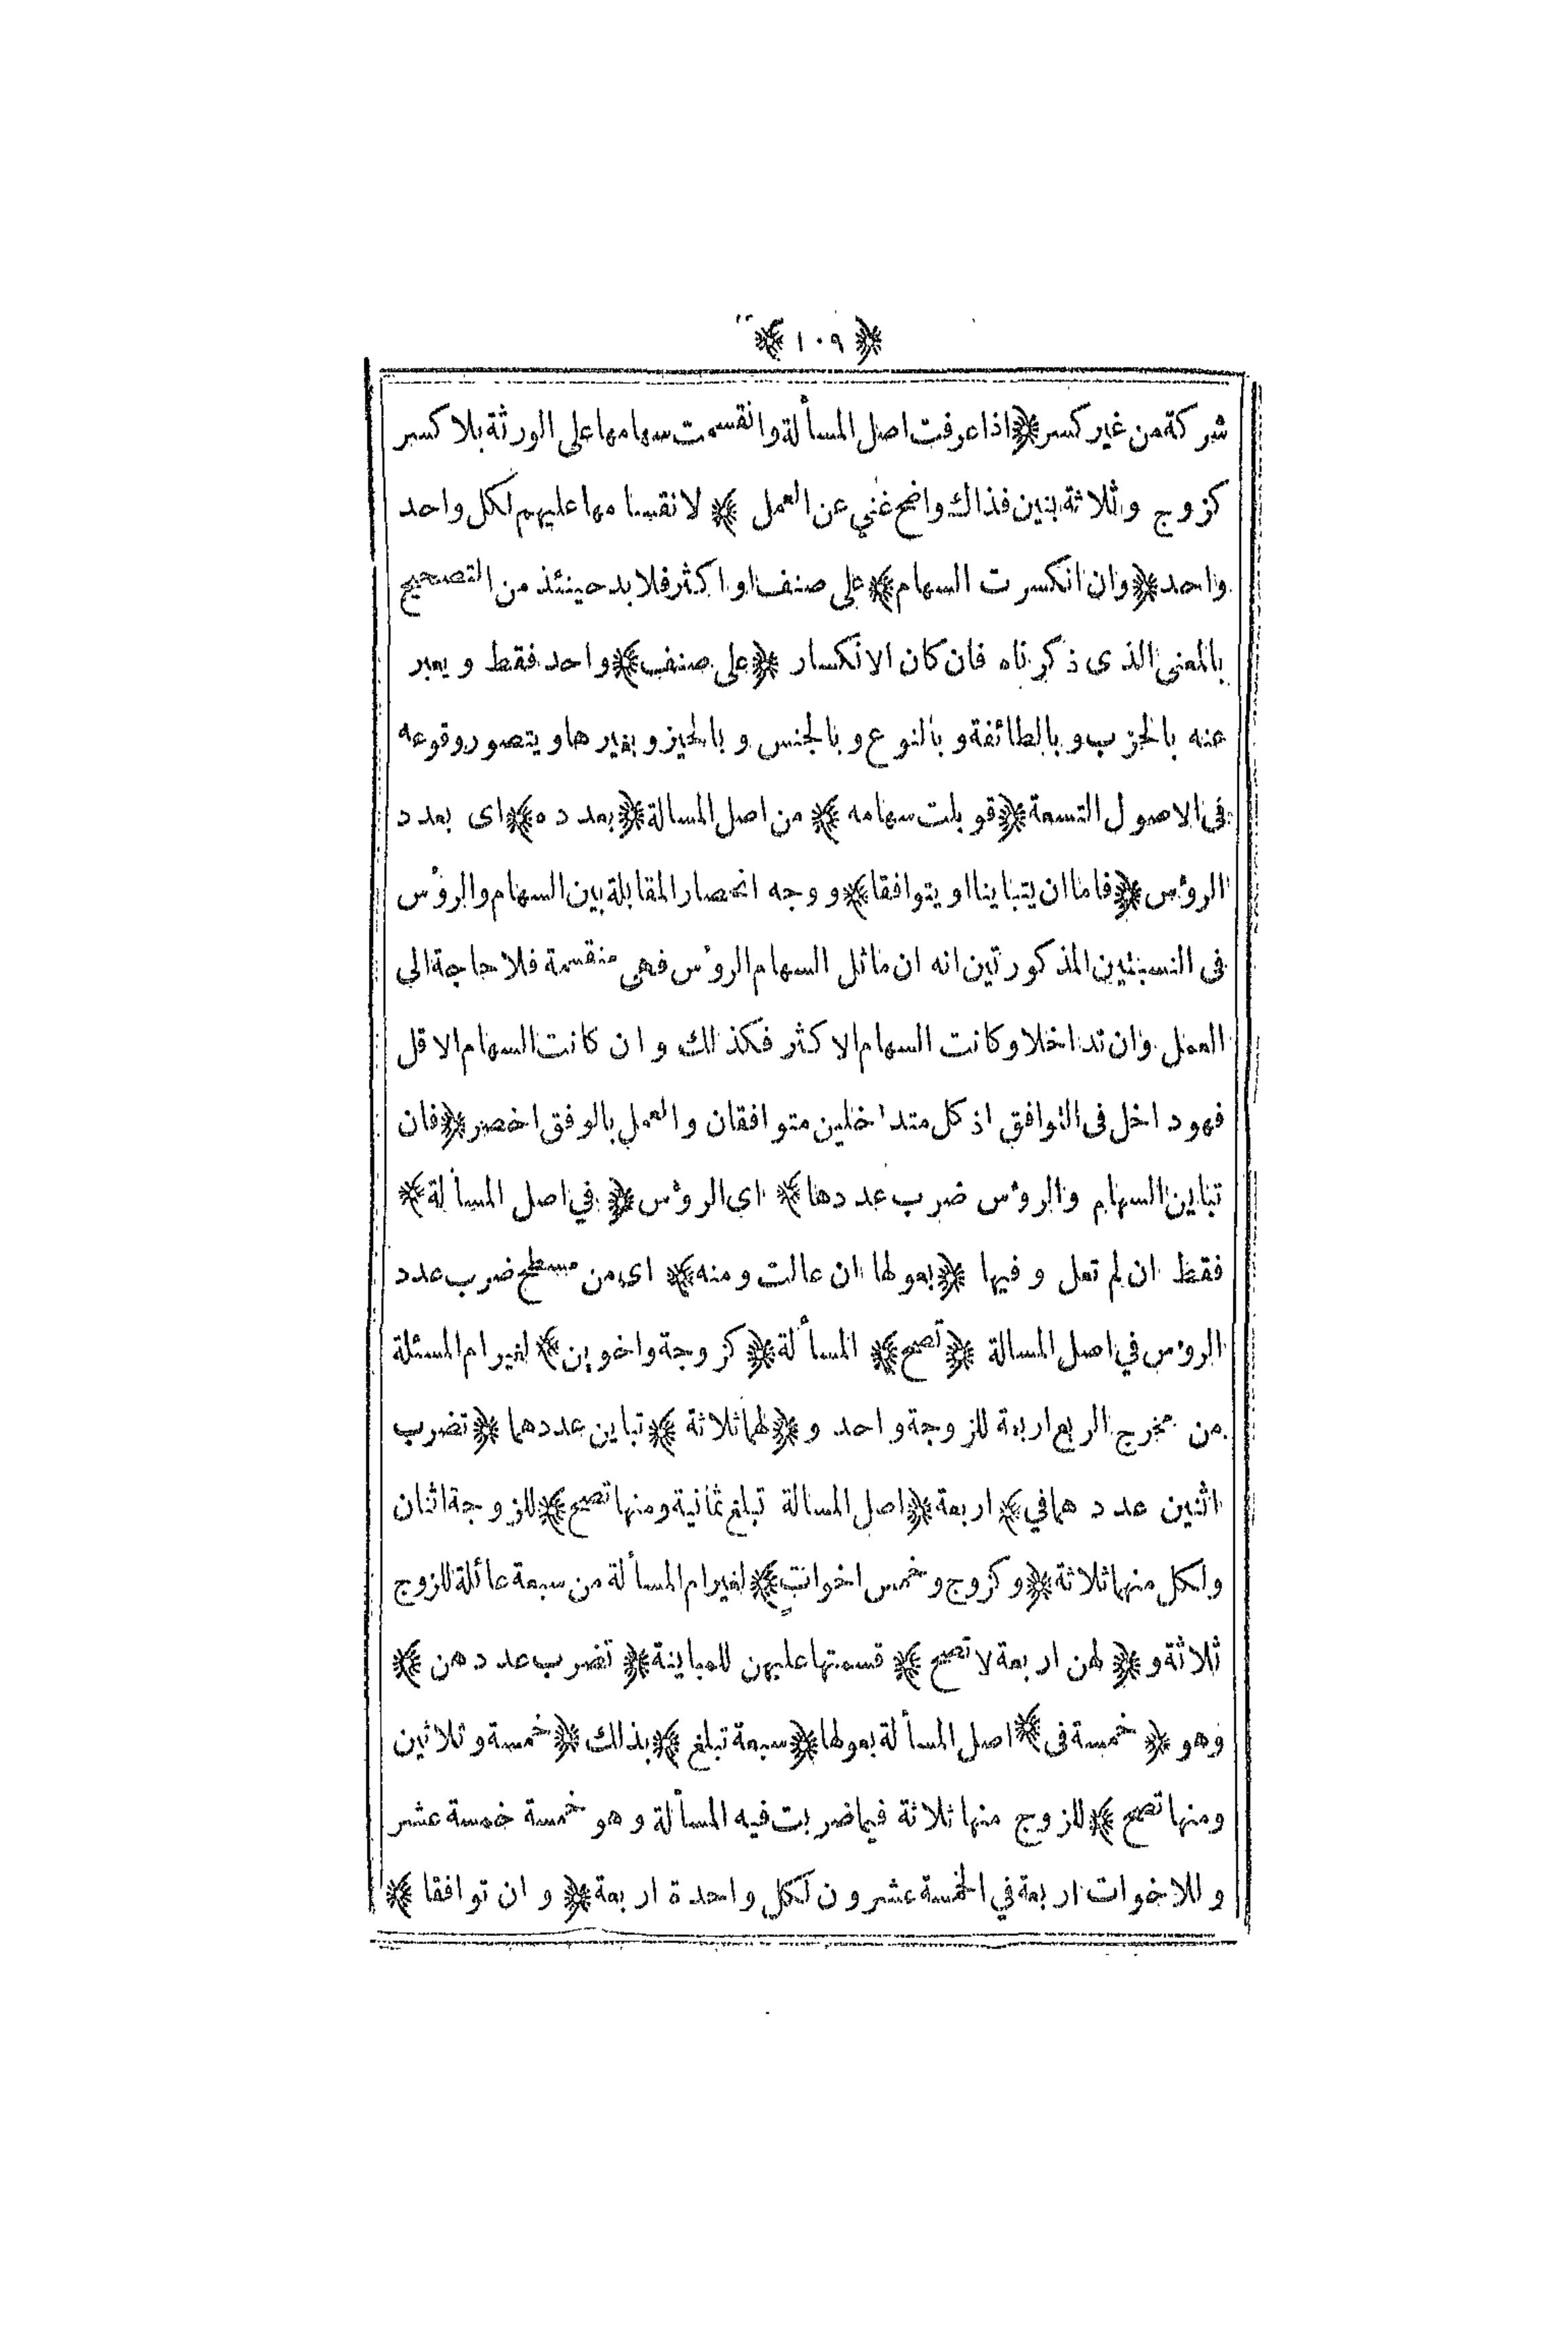 ﴿ ١٠٩ ﴾
شركة من غير كسر ﴿ اذا عرفت اصل المسألة وانقسمت سهامها على الورثة بلا كسر
كزوج وثلاثة بنين فذاك واضح غني عن العمل ﴾ لانقسامها عليهم لكل واحد
واحد ﴿ وان انكسرت السهام ﴾ على صنف او اكثر فلا بد حينئذ من التصحيح
بالمعنى الذى ذكرناه فان كان الانكسار ﴿ على صنف ﴾ واحد فقط ويعبر
عنه بالحزب وبالطائفة وبالنوع وبالجنس وبالحيز وبغيرها ويتصور وقوعه
فى الاصول التسعة ﴿ قوبلت سهامه ﴾ من اصل المسالة ﴿ بعدده ﴾ اى بعدد
الرؤس ﴿ فاما ان يتباينا او يتوافقا ﴾ ووجه انحصار المقابلة بين السهام والرؤس
فى النسبتين المذكورتين انه ان ماثل السهام الرؤس فهى منقسمة فلا حاجة الى
العمل وان تداخلا وكانت السهام الاكثر فكذلك وان كانت السهام الاقل
فهو داخل فى التوافق اذ كل متداخلين متوافقان والعمل بالوفق اخصر ﴿ فان
تباين السهام والرؤس ضرب عددها ﴾ اى الرؤس ﴿ في اصل المسألة ﴾
فقط ان لم تعل وفيها ﴿ بعولها ان عالت ومنه ﴾ اى من مسطح ضرب عدد
الرؤس في اصل المسالة ﴿ تصح ﴾ المسألة ﴿ كزوجة واخوين ﴾ لغير ام المسئلة
من مخرج الربع اربعة للزوجة واحد و ﴿ لهما ثلاثة ﴾ تباين عددهما ﴿ تضرب
اثنين عددهما في ﴾ اربعة ﴿ اصل المسالة تبلغ ثمانية ومنها تصح ﴾ للزوجة اثنان
ولكل منهما ثلاثة ﴿ وكزوج وخمس اخوات ﴾ لغير ام المسألة من سبعة عائلة للزوج
ثلاثة و ﴿ لهن اربعة لا تصح ﴾ قسمتها عليهن للمباينة ﴿ تضرب عددهن ﴾
وهو ﴿ خمسة فى ﴾ اصل المسألة بعولها ﴿ سبعة تبلغ ﴾ بذلك ﴿ خمسة وثلاثين
ومنها تصح ﴾ للزوج منها ثلاثة فيما ضربت فيه المسألة وهو خمسة خمسة عشر
وللاخوات اربعة في الخمسة عشرون لكل واحدة اربعة ﴿ وان توافقا ﴾